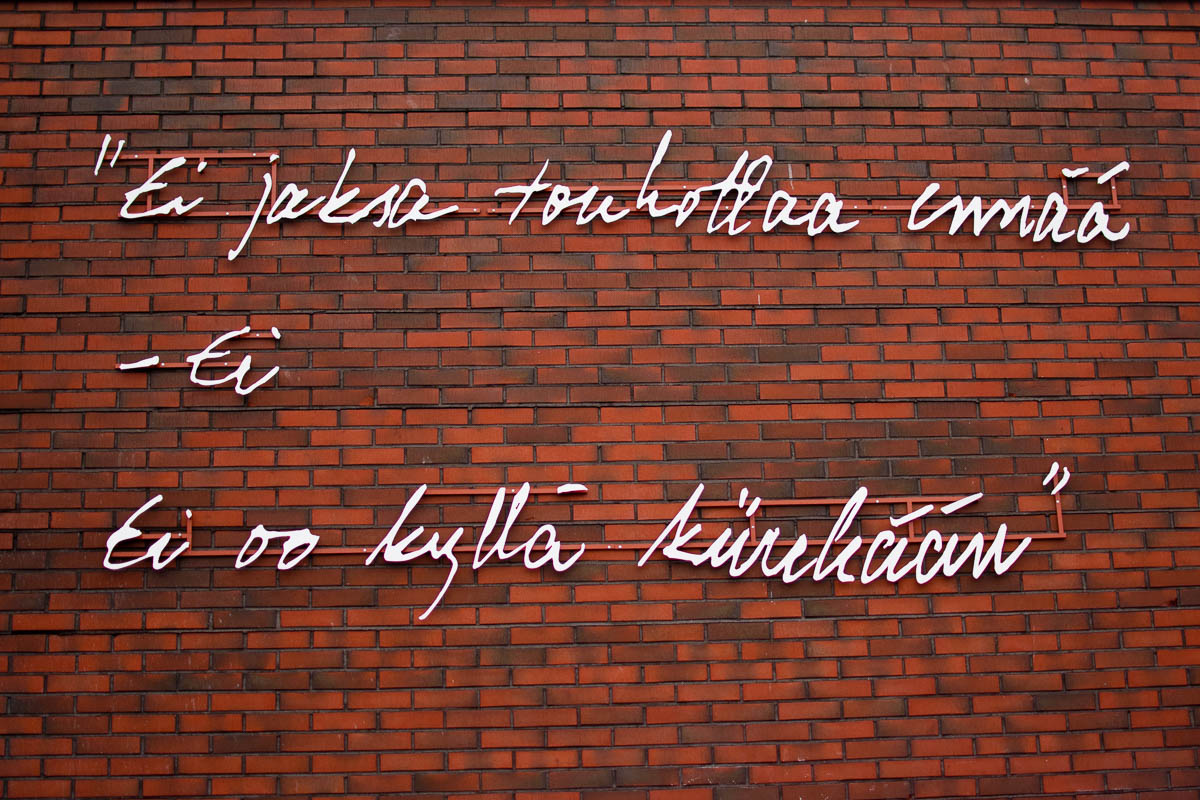 "Ei jaksa touhottaa ennää
- Ei
Ei oo kyllä kiirekään"